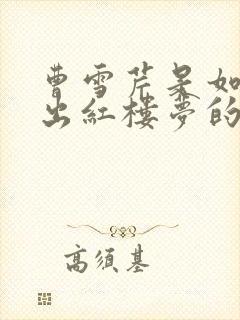 曹雪芹是如
出紅樓夢的
高須基